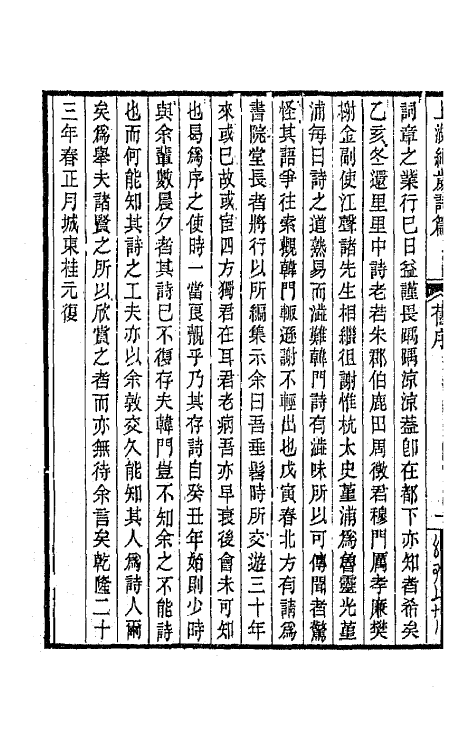 上湖紀歲詩篇
舊序
詞章之業行巳日益謹長踽踽涼涼葢卽在都下亦知者希矣
乙亥冬還里里中詩老若朱郡伯鹿田周徵君穆門厲孝廉樊
榭金副使江聲諸先生相繼徂謝惟杭太史堇浦爲魯靈光堇
浦每曰詩之道熟易而澁難韓門詩有澁味所以可傳聞者驚
怪其語爭往索觀韓門輒遜謝不輕出也戊寅春北方有請爲
書院堂長者將行以所編集示余曰吾垂髫時所交遊三十年
來或巳故或宦四方獨君在耳君老病吾亦早衰後會未可知
也曷爲序之使時一當面覿乎乃其存詩自癸丑年始則少時
與余輩數晨夕者其詩巳不復存夫韓門豈不知余之不能詩
也而何能知其詩之工夫亦以余敦交久能知其人爲詩人爾
矣爲舉夫諸賢之所以欣賞之者而亦無待余言矣乾隆二十
三年春正月城東桂元復